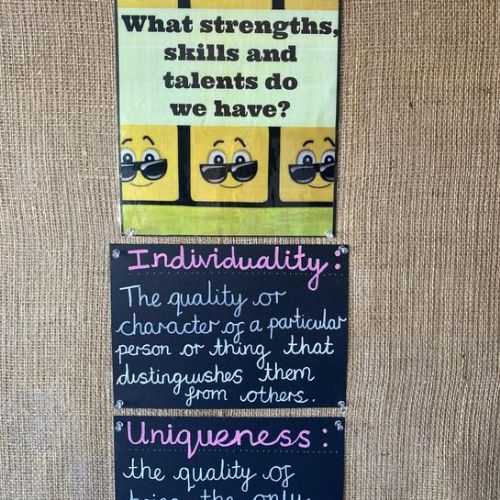 What strengths,
skills and
talents do
we have?
Individuality:
The quality or
character of a particular
person or thing that
distinguishes them
from others.
Uniqueness:
the quality of
being the only